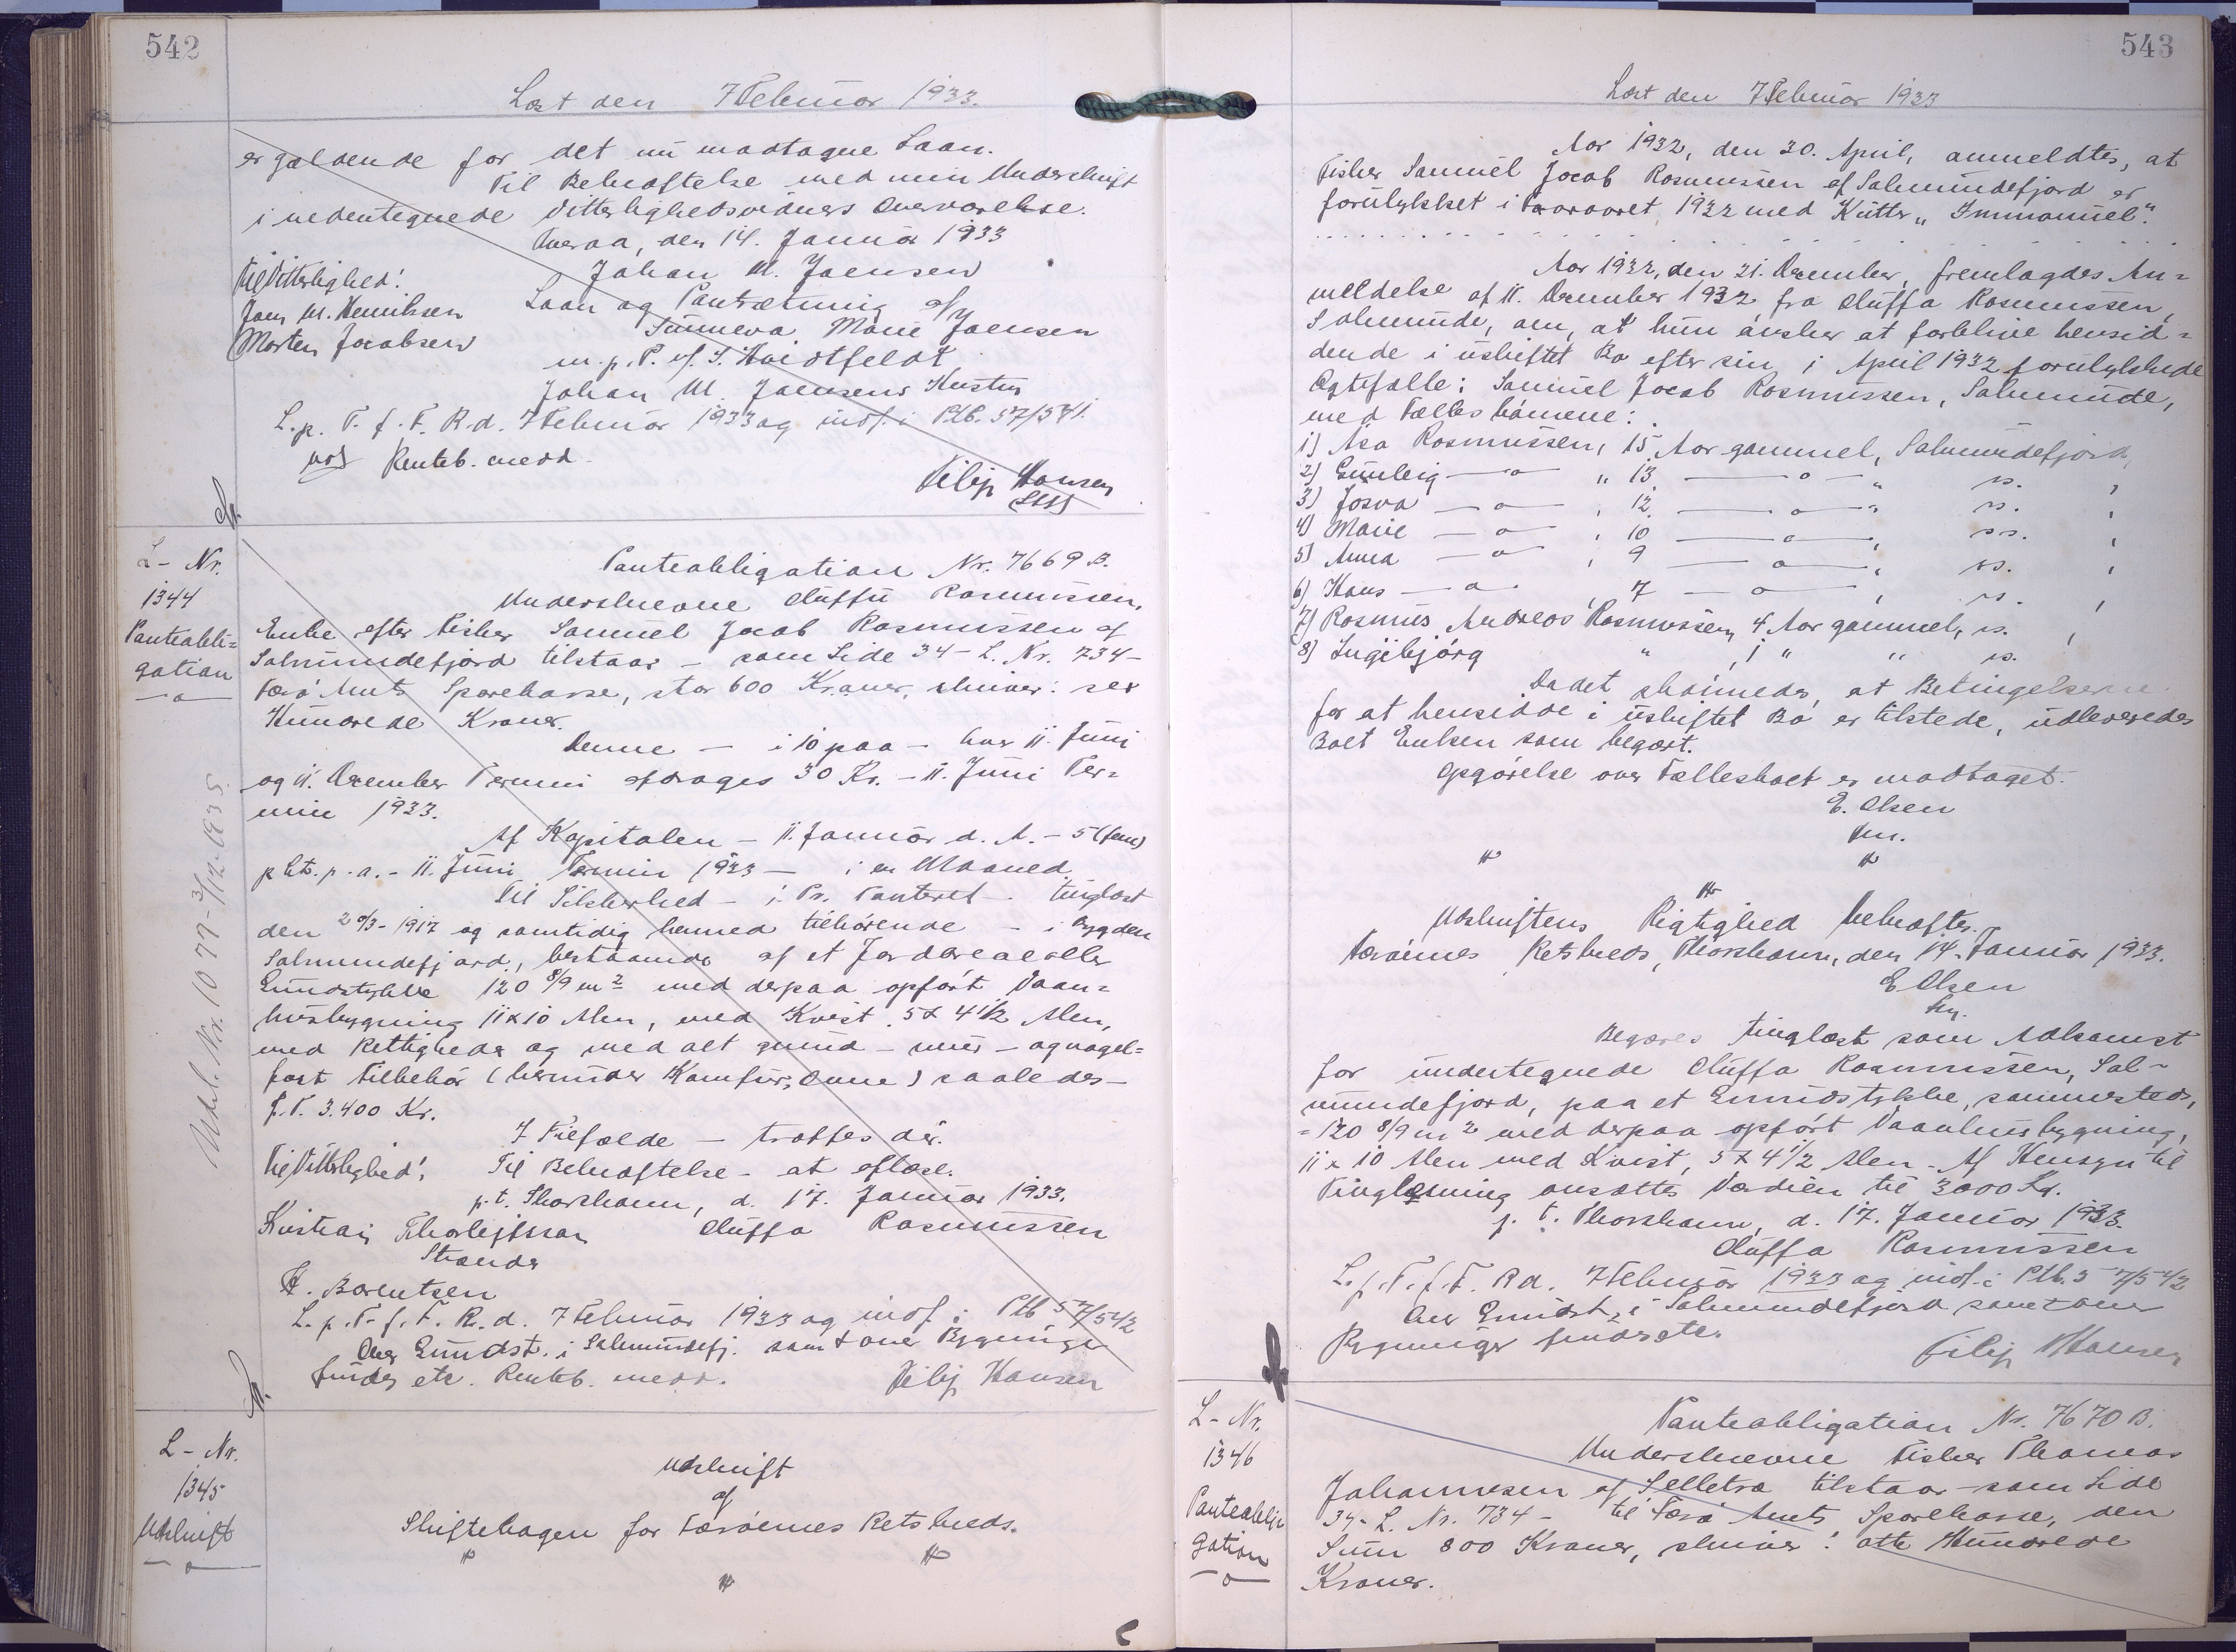 542
Læst den 7 Februar 1933.
er gældende for det nu modtagne Laan.
Til Bekræftelse med min Underskrift
i nedentegnede Vitterlighedsvidners Overværelse.
Tveraa, den 14. Januar 1933
Til Vitterlighed!
Johan M. Joensen
Joen M. Henriksen
Laan og Pantsætning af
Morten Jacobsen
Sunneva Marie Joensen
m. p. P. v/ S. Hvidtfeldt
Johan M. Joensens Hustru
L. p. T. f. F. R. d. 7 Februar 1933 og indf. i Ptb. 57/541.
Renteb. medd.
Filip Hansen
L-Nr.
1344
Panteobli=
gation
Udsl. Nr. 1077 - 3/12-1935.
Panteobligation Nr. 7669 B.
Underskrevne Oluffa Rasmussen,
Enke efter Fisker Samuel Jacob Rasmussen af
Salmundefjord tilstaar - som Side 34 - L. Nr. 734 -
Færø Amts Sparekasse, stor 600 Kroner, skriver: sex
Hundrede Kroner.
Denne - i 10 paa - hver 11. Juni
og 11. December Termin afdrages 30 Kr. - 11. Juni Ter=
min 1933.
Af Kapitalen - 11. Januar d. A. - 5 (fem)
pCt. p. a. - 11. Juni Termin 1933 - i en Maaned
Til Sikkerhed - 1. Pr. Panteret - tinglæst
den 20/3-1917 og samtidig hermed tilhørende - i Bygden
Salmundefjord, bestaaende af et Jordareal eller
Grundstykke 120 8/9 m2 med derpaa opført Vaan=
husbygning 11 x 10 Alen, med Kvist 5 x 4 1/2 Alen,
med Rettigheder og med alt grund - mur - og nagel=
fast Tilbehør (herunder Komfur, Ovne) saaledes -
f. T. 3.400 Kr.
I Tilfælde - træffes der.
Til Vitterlighed!
Til Bekræftelse - at aflæse.
p. t. Thorshavn, d. 17. Januar 1933.
Kristian Thorleifsson
Oluffa Rasmussen
Strande
H. Berentsen
L. p. T. f. F. R. d. 7 Februar 1933 og indf. i Ptb 57/542
Over Grundst. i Salmundefj. samt over Bygninger
findes etc. Renteb. medd.
Filip Hansen
L-Nr.
1345
Udskrift
Udskrift
af
Skiftebogen for Færøernes Retskreds.
543
Læst den 7 Februar 1933
Aar 1932, den 30. April, anmeldtes, at
Fisker Samuel Jacob Rasmussen af Salmundefjord er
forulykket i Foraaret 1932 med Kutter „Immanuel".
Aar 1932, den 21. December, fremlagdes An=
meldelse af 11. December 1932 fra Oluffa Rasmussen,
Salmunde, om, at hun ønsker at forblive hensid=
dende i uskiftet Bo efter sin i April 1932 forulykkede
Ægtefælle: Samuel Jacob Rasmussen, Salmunde,
med Fællesbørnene:
1) Asa Rasmussen, 15 Aar gammel, Salmundefjord,
2) Gunleig —o— „ 13. —o— „ ss. ,
3) Josva —o— , 12. —o— „ ss. ,
4) Marie —o— , 10 —o— , ss. ,
5) Anna —o— , 9 —o— , ss. ,
6) Hans —o— , 7 —o— , ss. ,
7) Rasmus Andreas Rasmussen, 4 Aar gammel, ss. ,
8) Ingibjørg „ , 1 „ „ ss.
Da det skønnedes, at Betingelserne
for at hensidde i uskiftet Bo er tilstede, udleveredes
Boet Enken som begært.
Opgørelse over Fællesboet er modtaget.
E. Olsen
Udskriftens Rigtighed bekræftes.
Færøernes Retskreds, Thorshavn, den 14. Januar 1933.
E Olsen
Begæres tinglæst som Adkomst
for undertegnede Oluffa Rasmussen, Sal-
mundefjord, paa et Grundstykke, sammesteds,
= 120 8/9 m2 med derpaa opført Vaanhusbygning,
11 x 10 Alen med Kvist, 5 x 4 1/2 Alen. Af Hensyn til
Tinglæsning ansættes Værdien til 3000 Kr.
p. t. Thorshavn, d. 17. Januar 1933.
Oluffa Rasmussen
L. p. T. f. F. R d. 7 Februar 1933 og indf. i Ptb. 57/542
Over Grundst. i Salmundefjord samt over
Bygninger findes etc.
Filip Hansen
L-Nr.
1346
Panteobli
gation
Panteobligation Nr. 7670 B.
Underskrevne Fisker Thomas
Johannesen af Selletræ tilstaar - som Side
34 - L. Nr. 734 - til Færø Amts Sparekasse, den
Sum 800 Kroner, skriver: otte Hundrede
Kroner.